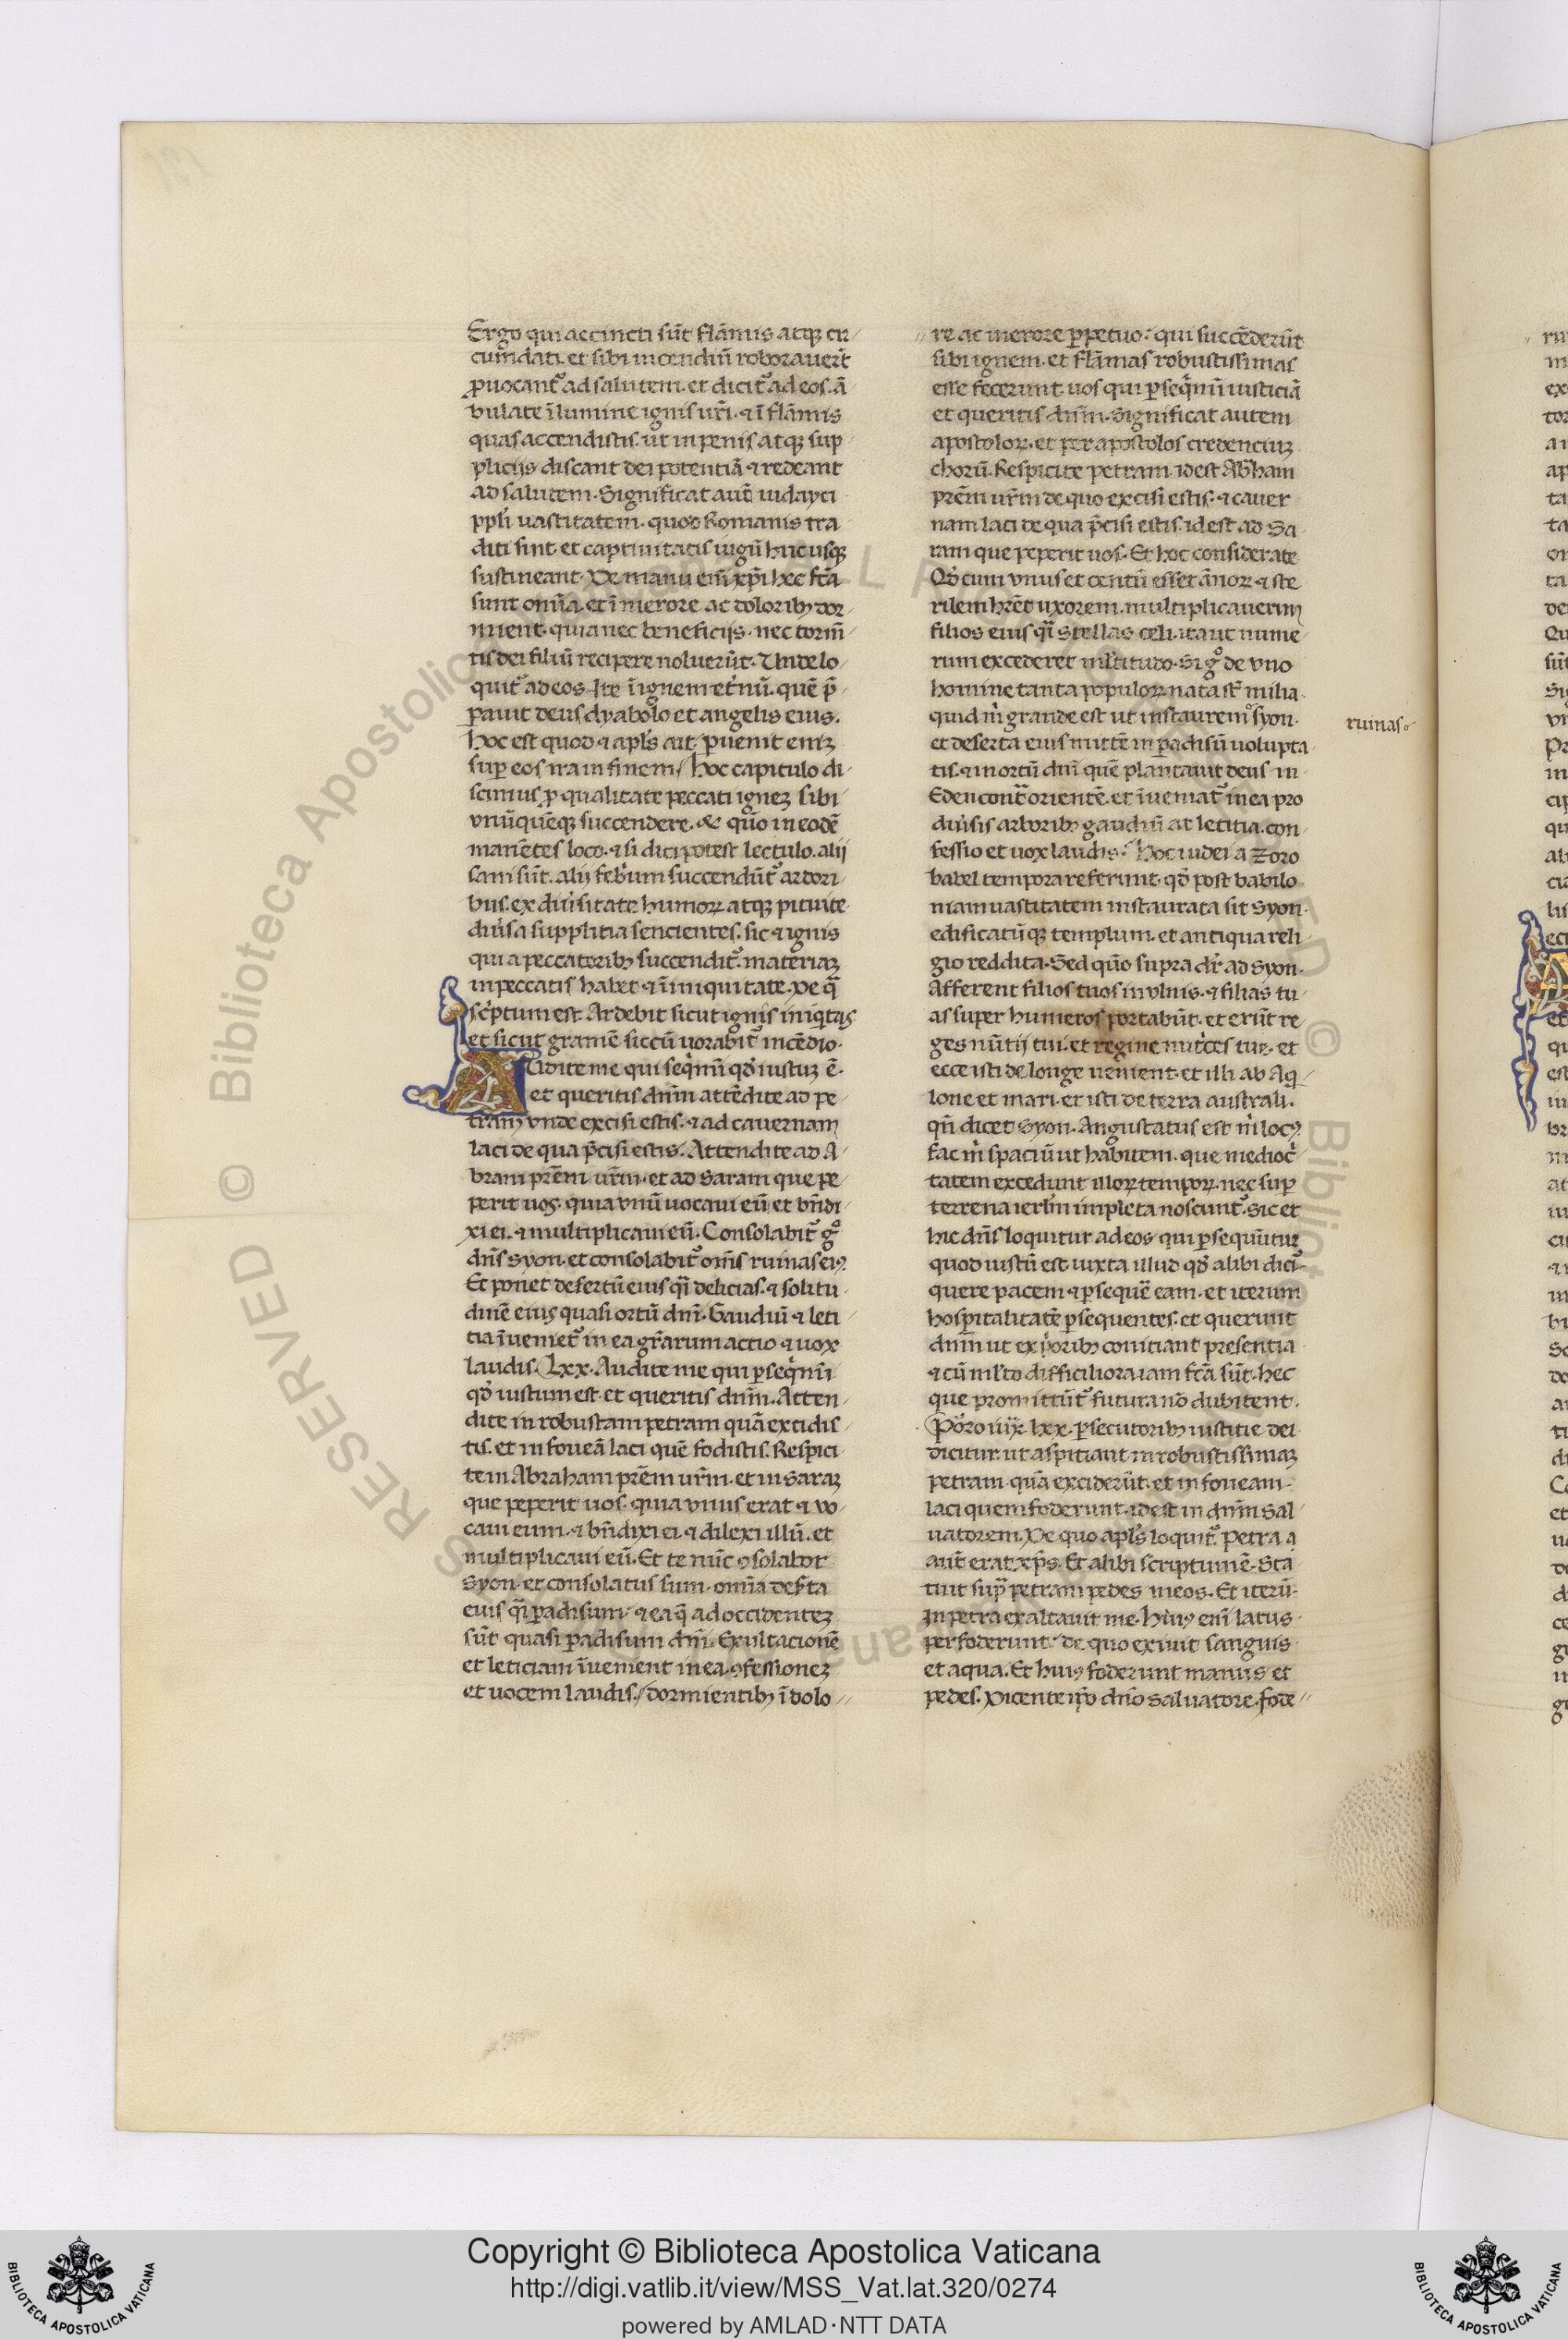 Ergo qui accincti sūt flāmis atqꝫ cir
cumdati. et sibi incendiū roborauerūt
ꝓuocant᷑ ad salutem. et dicit᷑ ad eos. ā
bulate ī lumine ignis ur̄i. ⁊ ī flāmis
quas accendistis. ut in penis atqꝫ sup
plicijs discant dei potentiā ⁊ redeant
ad salutem. Significat aut̄ iudayci
ppl̓i uastitatem. quod Romanis tra
diti sint et captiuitatis iugū huc usqꝫ
sustineant. De manu eni᷑ xp̄i hec fc̄a
sunt om̄ia. et ī merore ac doloribꝫ dor
mient. quia nec beneficijs. nec torm̄
tis dei filiū recipere noluerūt. Unde lo
quit᷑ ad eos. Ite ī ignem et̓nū. quē p̄
parauit deus dyabolo et angelis eius.
hoc est quod ⁊ apl̓s ait. ꝑuenit enīꝫ
suꝑ eos ira in finem. hoc capitulo di
scimus ꝓ qualitate peccati igneꝫ sibi
vnūquēqꝫ succendere. & quō in eodē
manētes loco. ⁊ si dici potest lectulo. alij
sani sūt. alij febrium succendūt᷑ ardori
bus. ex diu̓sitate humoꝝ atqꝫ pituite
diu̓sa supplitia sencientes. sic ⁊ ignis
qui a peccatoribꝫ succendit᷑. materiaꝫ
in peccatis habet ⁊ ī iniquitate. De q̄
sc̓ptum est. Ardebit sicut ignis iniq̓tas
et sicut gramē siccū uorabit᷑ incēdio.
AUdite me qui seq̓mī qd̓ iustuꝫ ē.
et queritis dn̄m attēdite ad pe
tram vnde excisi estis. ⁊ ad cauernam
laci de qua p̄cisi estis. Attendite ad A
bram pr̄em ur̄m. et ad Saram que pe
perit uos. quia vnū uocaui eū et bn̄di
xi ei. ⁊ multiplicaui eū. Consolabit᷑ gͦ
dn̄s Syon. et consolabit᷑ om̄s ruinas eiꝰ.
Et ponet desertū eius q̄i delicias. ⁊ solitu
dinē eius quasi ortū dn̄i. Gaudiū ⁊ leti
tia īueniet᷑ in ea gr̄arum actio ⁊ uox
laudis. Lxx. Audite me qui ꝑseq̓mī
qd̓ iustum est. et queritis dn̄m. Atten
dite in robustam petram quā excidis
tis. et in foueā laci quē fodistis. Respici
te in Abraham pr̄em ur̄m. et in Saraꝫ
que peperit uos. quia vnus erat ⁊ uo
caui eum. ⁊ bn̄dixi ei. ⁊ dilexi illū. et
multiplicaui eū. Et te nūc ꝯsolabor
Syon. et consolatus sum. om̄ia des̓ta
eius q̄i ꝑadisum. ⁊ ea q̄ ad occidenteꝫ
sūt quasi ꝑadisum dn̄i. Exultacionē
et leticiam īuenient in ea. ꝯfessioneꝫ
et uocem laudis. dormientibꝫ ī dolo
re ac merore ꝑpetuo. qui succēderūt
sibi ignem. et flāmas robustissimas
esse fecerunt. uos qui ꝑseq̓mī iusticiā
et queritis dn̄m. Significat autem
apostoloꝝ. et per apostolos credenciuꝫ
chorū. Respicite petram. idest Abr̄ham
pr̄em ur̄m de quo excisi estis. ⁊ cauer
nam laci de qua p̄cisi estis. id est ad Sa
ram que peperit uos. Et hoc considerate
Qd̓ cum vnus et centū esset ānoꝝ ⁊ ste
rilem hr̄et uxorem. multiplicauerim
filios eius q̄i stellas celi. ita ut nume
rum excederet ml̓titudo. Si gͦ de vno
homine tanta populoꝝ nata st̄ milia.
quid m̓ grande est ut instaurem Syon.
ruinas
et deserta eius mutē in ꝑadisū uolupta
tis. ⁊ in ortū dn̄i quē plantauit deus in
Eden cont̄ orientē. et īueniat᷑ in ea pro
diu̓sis arboribꝫ gaudiū ac letitia. con
fessio et uox laudis. hoc iudei a Zoro
babel tempora referunt. qd̓ post babilo
niam uastitatem instaurata sit Syon.
edificatūqꝫ templum. et antiqua reli
gio reddita. Sed quō supra dr̄ ad Syon.
Afferent filios tuos in vlnis. ⁊ filias tu
as super humeros portabūt. et erūt re
ges nūtij tui. et regine nut̓ces tue. et
ecce isti de longe uenient. et illi ab Aq̓
lone et mari. et isti de terra australi.
qn̄ dicet Syon. Angustatus est m̓ locꝰ
fac m̓ spaciū ut habitem. que medioc̓
tatem excedunt illoꝝ tempoꝝ. nec suꝑ
terrena ierl̓m impleta noscunt᷑. Sic et
hic dn̄s loquitur ad eos qui ꝑsequūtur
quod iustū est iuxta illud qd̓ alibi dicit᷑
quere pacem ⁊ ꝑsequē eam. et iterum
hospitalitatē ꝑsequentes. et querunt
dn̄m ut ex p̓oribꝫ coniciant presentia
⁊ cū ml̓to difficiliora iam fc̄a sūt. hec
que promittūt᷑ futura nō dubitent.
Porro iux̄. lxx. ꝑsecutoribꝫ iustitie dei
dicitur. ut aspitiant in robustissimaꝫ
petram. quā exciderūt. et in foueam
laci quem foderunt. id est in dn̄m sal
uatorem. De quo apl̓s loquit᷑. Petra a
aut̄ erat xp̄s. Et alibi scriptum ē. Sta
tuit sup̄ petram pedes meos. Et iterū
In petra exaltauit me. huiꝰ eni᷑ latus
perfoderunt. de quo exiuit sanguis
et aqua. Et huiꝰ foderunt manus et
pedes. Dicente ip̄o dn̄o saluatore. fode
Copyright © Biblioteca Apostolica Vaticana
http://digi.vatlib.it/view/MSS_Vat.lat.320/0274
powered by AMLAD·NTT DATA
BIBLIOTECA APOSTOLICA VATICANA
BIBLIOTECA APOSTOLICA VATICANA